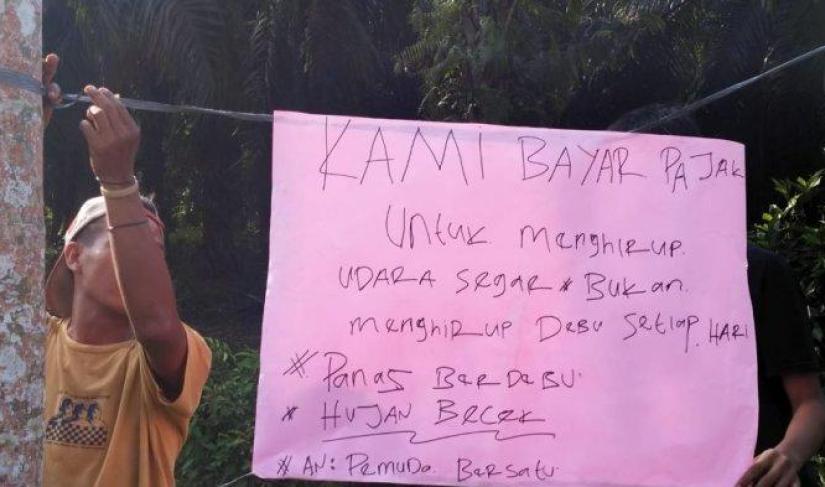 KAMI BAYAR PAJAK
Untuk menghirup.
UDARA segar * Bukan.
menghirup Debu Setiap, HARI
* Panas BerDeBU.
* HUJAN Becek
* AN: PemuDa Bersatu.